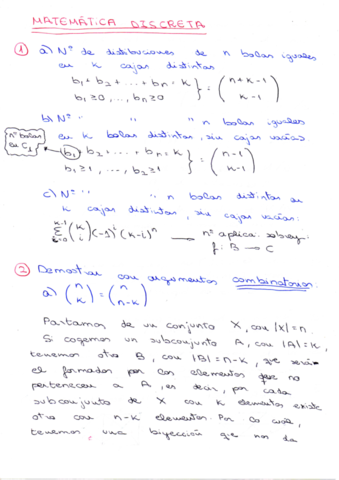 MATEMÁTICA DISCRETA
① a) Nº de distribuciones de n bolas iguales
en k cajas distintas
b₁ + b₂ + ... + bₙ = k
b₁ ≥ 0, ..., bₙ ≥ 0 } = (n+k-1 / k-1)
b) Nº " " " n bolas iguales
nº bolas en C₁
en k bolas distintas, sin cajas vacías
b₁ + b₂ + ... + bₙ = k
b₁ ≥ 1, ..., b₂ ≥ 1 } = (n-1 / k-1)
c) Nº " " " n bolas distintas en
k cajas distintas, sin cajas vacías:
∑ᵢ₌₀ᵏ⁻¹ (k / i) (-1)ⁱ (k-i)ⁿ → nº aplica. sobrey.
f: B → C
② Demostrar con argumentos combinatorios
a) (n / k) = (n / n-k)
Partamos de un conjunto X, con |X| = n.
Si cogemos un subconjunto A, con |A| = k,
tenemos otro B, con |B| = n-k, que será
el formado por los elementos que no
pertenecen a A, es decir, por cada
subconjunto de X con k elementos existe
otro con n-k elementos. Por lo cual,
tenemos una biyección que nos da